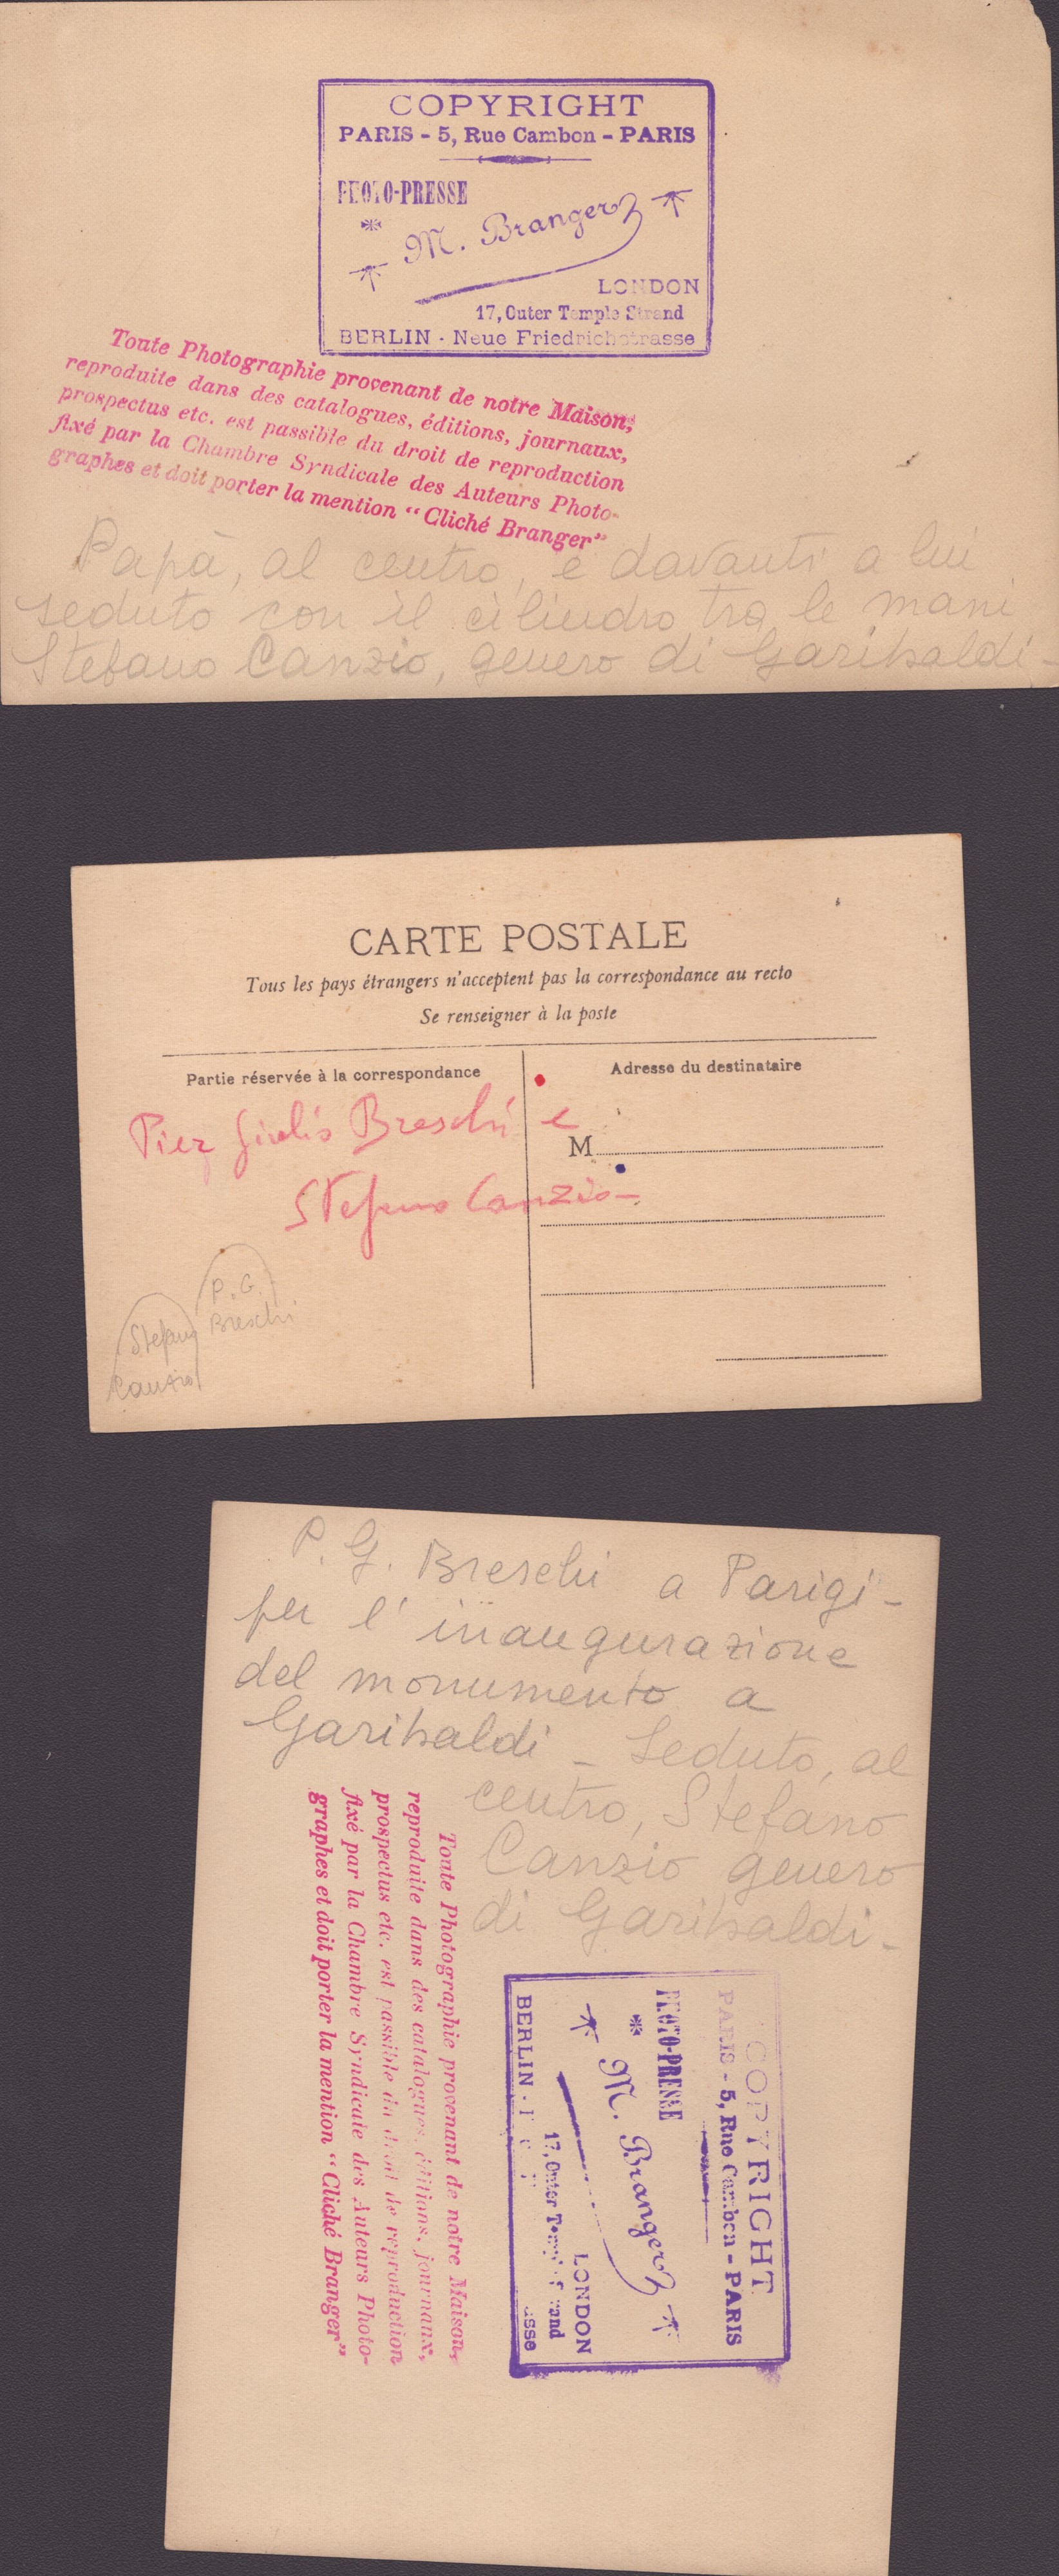 COPYRIGHT
PARIS - 5, Rue Cambon - PARIS
PHOTO-PRESSE
M. Branger
LONDON
17, Outer Temple Strand
BERLIN - Neue Friedrichstrasse
Toute Photographie provenant de notre Maison,
reproduite dans des catalogues, éditions, journaux,
prospectus etc. est passible du droit de reproduction
fixé par la Chambre Syndicale des Auteurs Photo-
graphes et doit porter la mention “Cliché Branger”
Papà, al centro, e davanti a lui
seduto con il cilindro tra le mani
Stefano Canzio, genero di Garibaldi -
CARTE POSTALE
Tous les pays étrangers n'acceptent pas la correspondance au recto
Se renseigner à la poste
Partie réservée à la correspondance
Adresse du destinataire
Pier Giulio Breschi e
M
Stefano Canzio -
P. G.
Breschi
Stefano
Canzio
P. G. Breschi a Parigi -
per l'inaugurazione
del monumento a
Garibaldi - Seduto, al
centro, Stefano
Canzio genero
di Garibaldi -
Toute Photographie provenant de notre Maison,
reproduite dans des catalogues, éditions, journaux,
prospectus etc. est passible du droit de reproduction
fixé par la Chambre Syndicale des Auteurs Photo-
graphes et doit porter la mention “Cliché Branger”
COPYRIGHT
PARIS - 5, Rue Cambon - PARIS
PHOTO-PRESSE
M. Branger
LONDON
17, Outer
BERLIN -